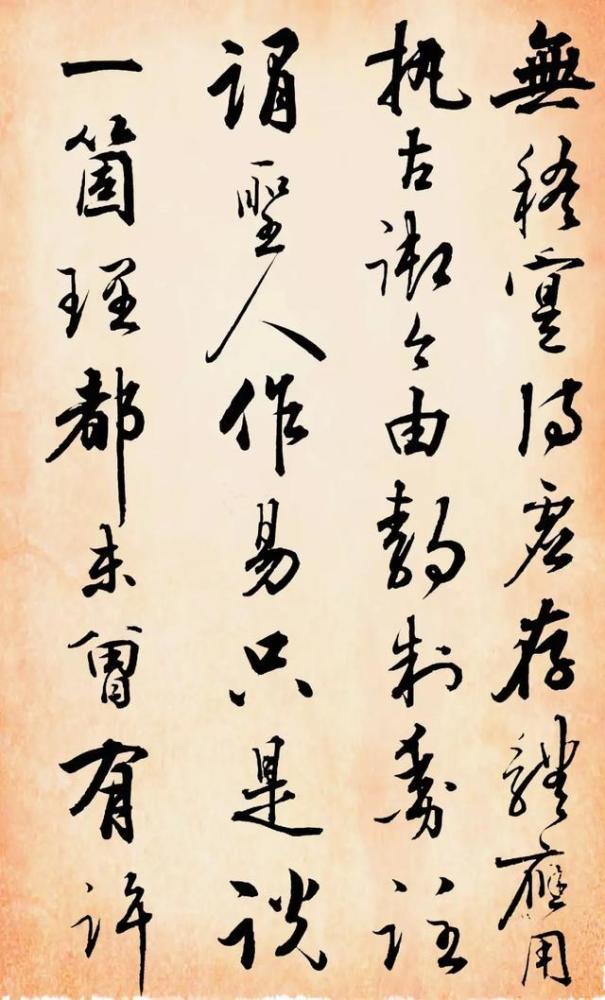 無稽實待虛存體應用
執古御今由靜制動註
謂聖人作易只是說
一箇理都未曾有許